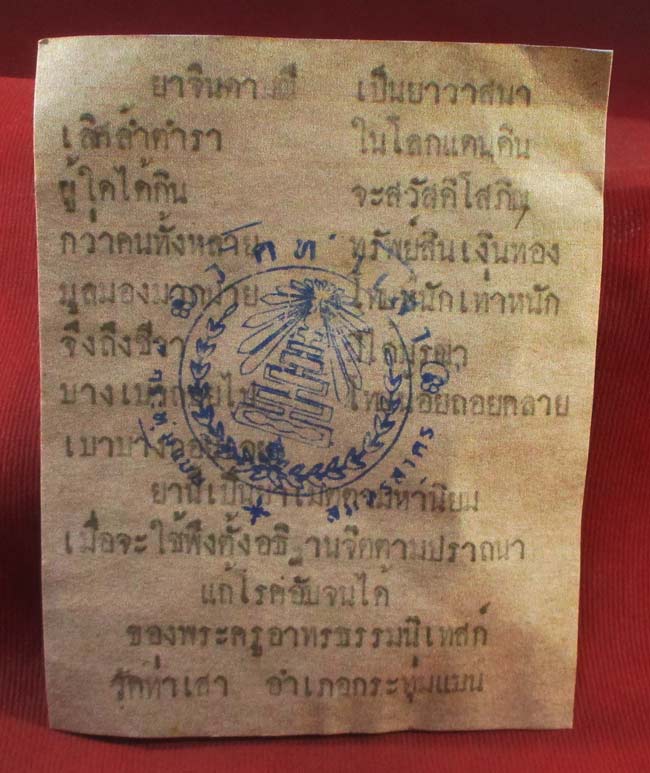 ยาจินดามณี เป็นยาวาสนา
เลิศล้ำตำรา ในโลกแดนดิน
ผู้ใดได้กิน จะสวัสดีโสภิณ
กว่าคนทั้งหลาย ทรัพย์สินเงินทอง
มูลมองมากมาย โทษหนักเท่าหนัก
จึงถึงชีวา
บางเบา โทษน้อยถอยคลาย
เบาบาง
ยานี้เป็นยาเมตตามหานิยม
เมื่อจะใช้พึงตั้งอธิฐานจิตตามปราถนา
แก้โรคอับจนได้
ของพระครูอาทรธรรมนิเทสก์
วัดท่าเสา อำเภอกระทุ่มแบน
สมุทรสาคร